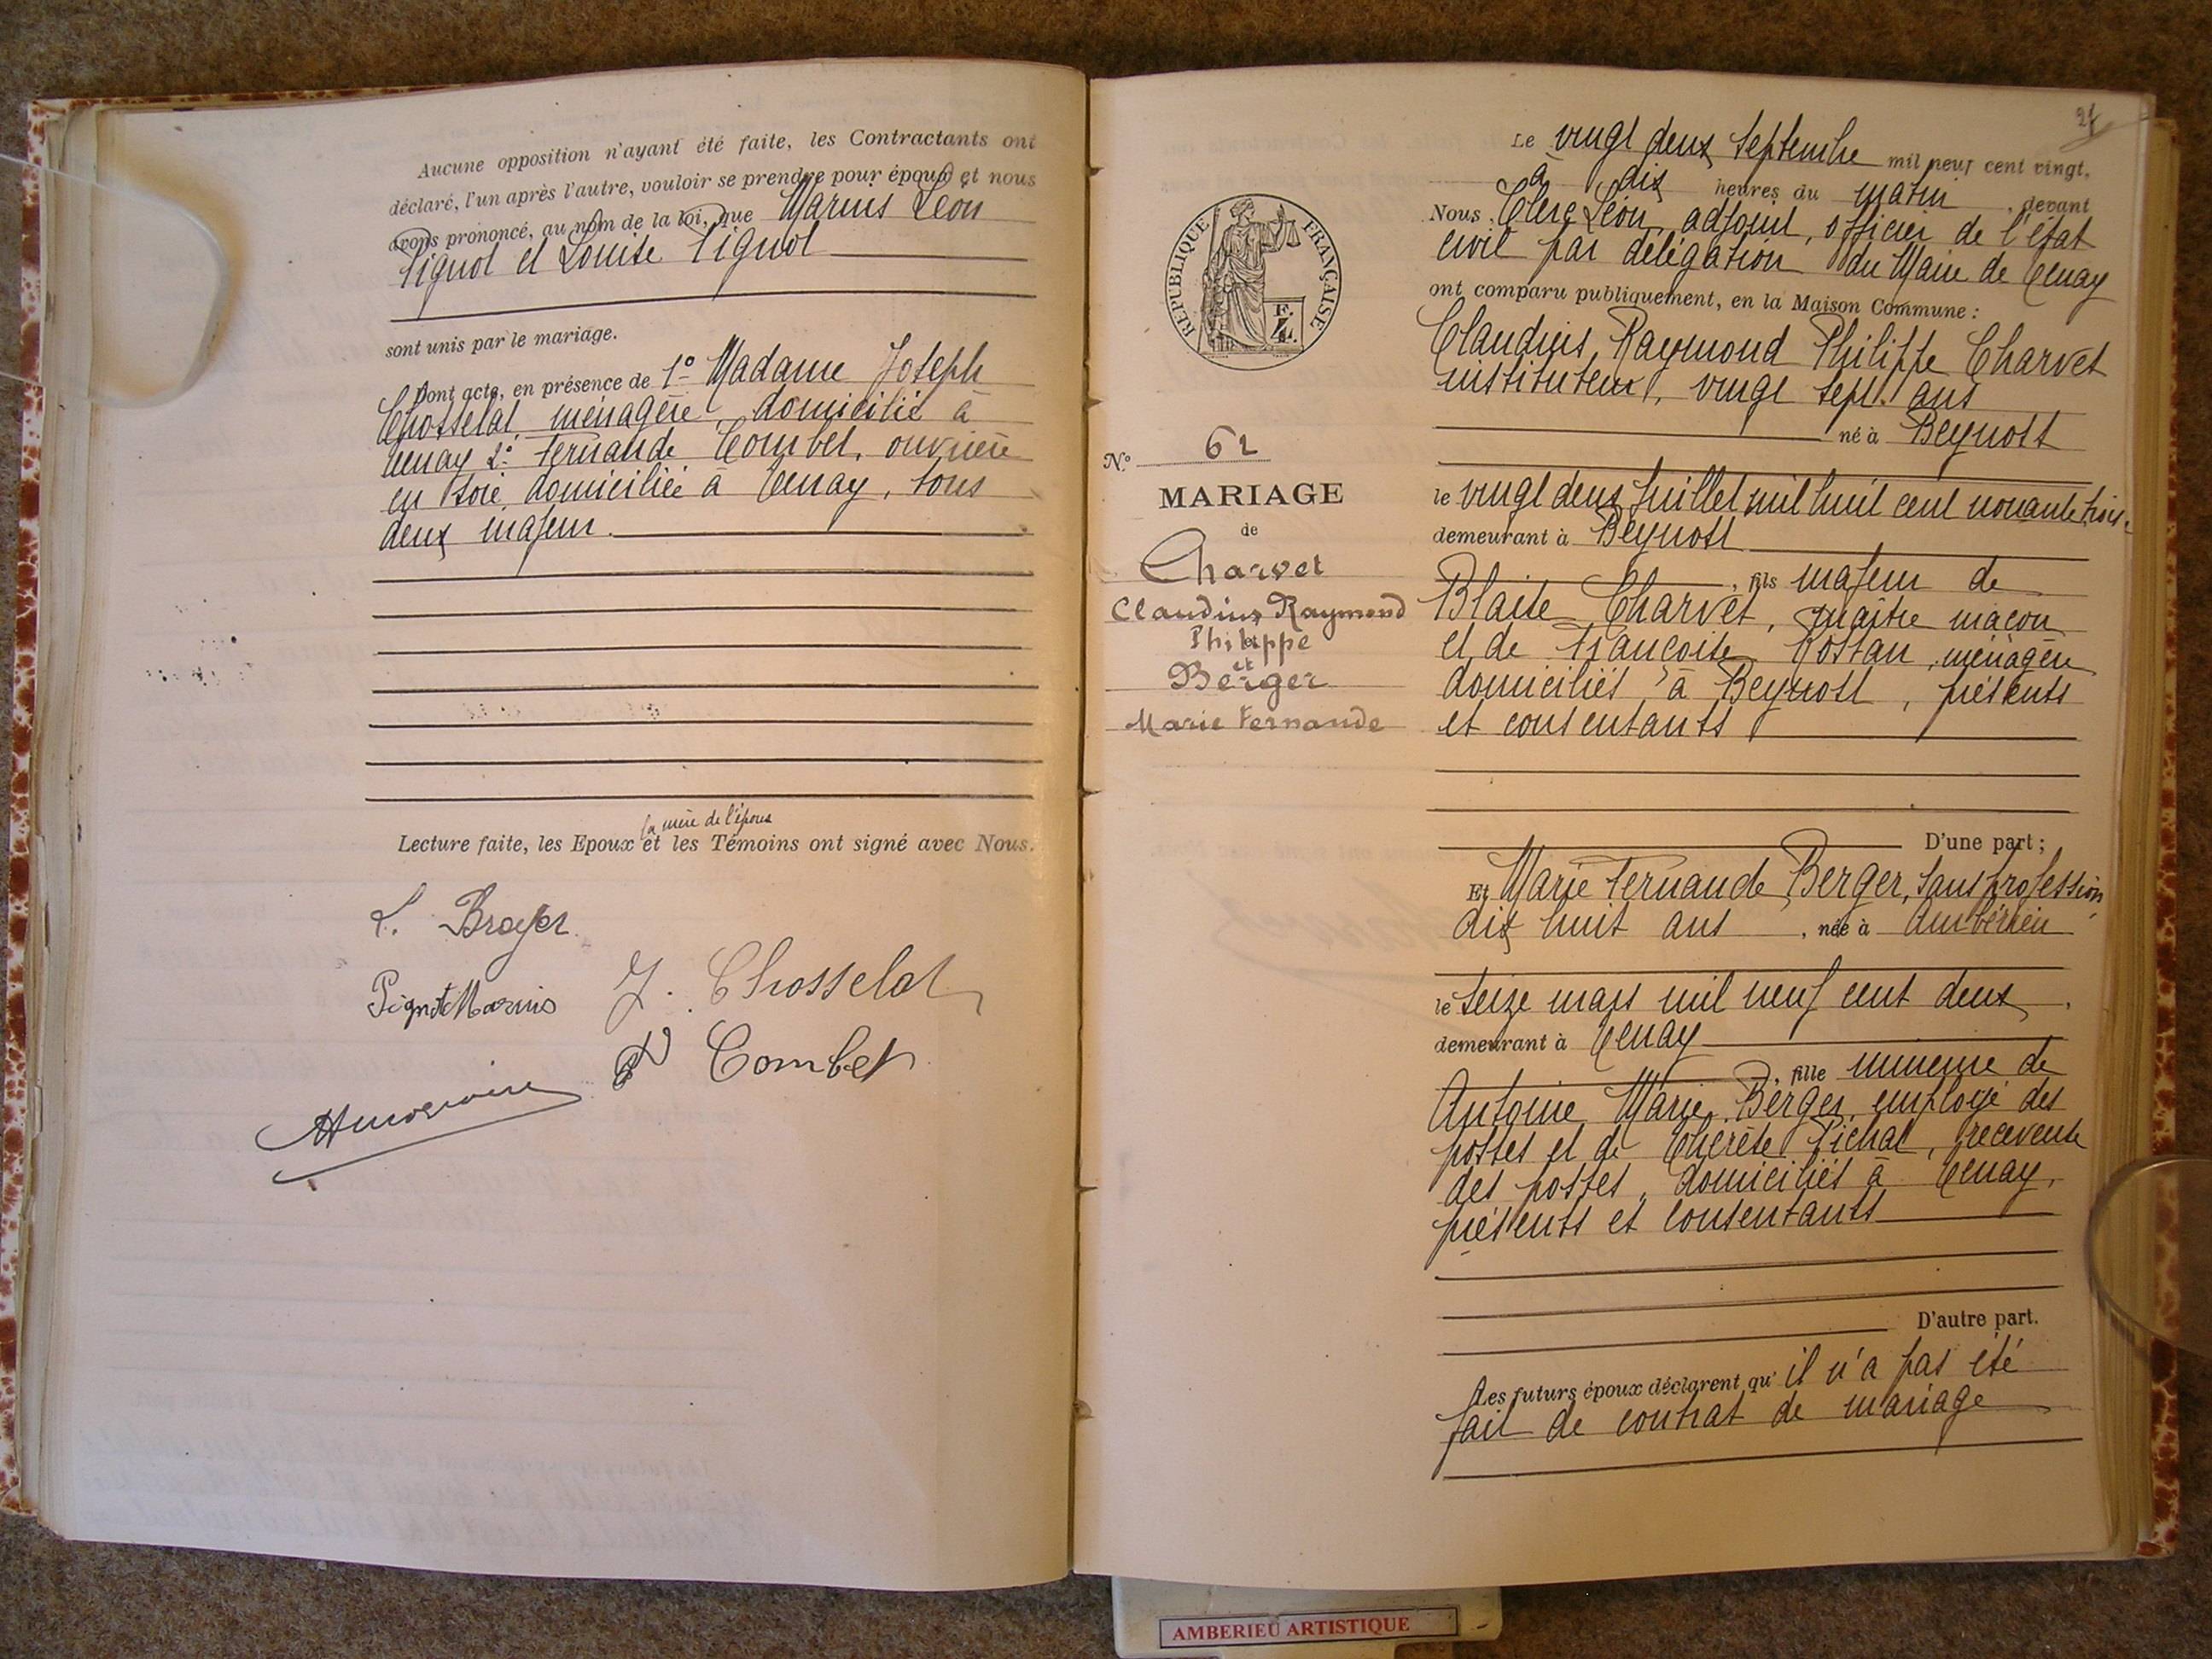 Aucune opposition n'ayant été faite, les Contractants ont
déclaré, l'un après l'autre, vouloir se prendre pour époux et nous
avons prononcé, au nom de la loi, que Marius Léon
Pignol et Louise Pignol
sont unis par le mariage.
Dont acte, en présence de 1° Madame Joseph
Chosselat, ménagère domicilié à
Tenay 2° Fernande Combet, ouvrière
en soie domiciliée à Tenay, tous
deux majeur.
la mère de l'épouse
Lecture faite, les Epoux et les Témoins ont signé avec Nous.
L. Broyer
Pignol Marius
J. Chosselat
Combet
24
Le vingt deux Septembre mil neuf cent vingt,
à dix heures du matin, devant
Nous, Clerc Léon, adjoint, officier de l'état
civil par délégation du Maire de Tenay
ont comparu publiquement, en la Maison Commune :
Claudius Raymond Philippe Charvet
instituteur, vingt sept ans
né à Beynost
le vingt deux Juillet mil huit cent nonante trois.
demeurant à Beynost
, fils majeur de
Blaise Charvet, maître maçon
et de Françoise Rostan, ménagère
domiciliés à Beynost, présents
et consentants
D'une part ;
Et Marie Fernande Berger, sans profession,
dix huit ans, née à Ambérieu
le seize mars mil neuf cent deux,
demeurant à Tenay
, fille mineure de
Antoine Marie Berger, employé des
postes et de Thérèse Pichat, receveuse
des postes, domiciliés à Tenay,
présents et consentants
D'autre part.
Les futurs époux déclarent qu'il n'a pas été
fait de contrat de mariage
RÉPUBLIQUE FRANÇAISE
F.
Z.
N° 62
MARIAGE
de
Charvet
Claudius Raymond
Philippe
et
Berger
Marie Fernande
AMBERIEU ARTISTIQUE